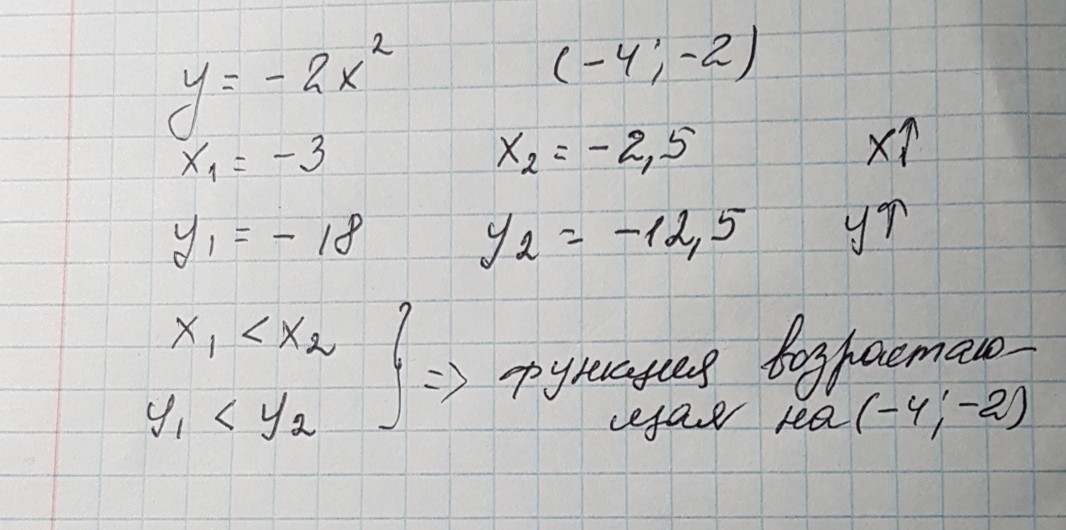 y = -2x² (-4; -2)
x₁ = -3 x₂ = -2,5 x↑
y₁ = -18 y₂ = -12,5 y↑
x₁ < x₂
y₁ < y₂ } => функция возрастаю-
щая на (-4; -2)